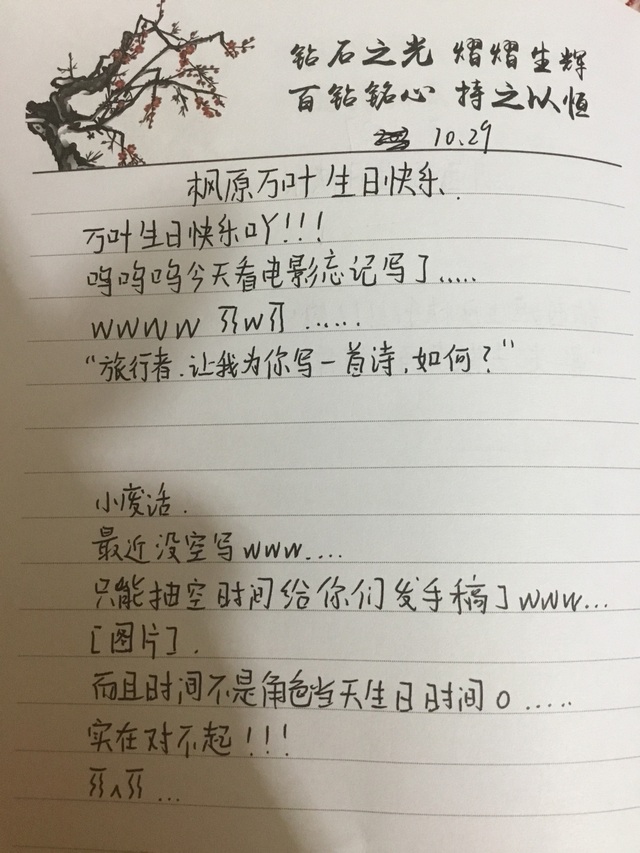 钻石之光 熠熠生辉
百钻铭心 持之以恒
10.29
枫原万叶生日快乐.
万叶生日快乐吖!!!
呜呜呜今天看电影忘记写了.....
wwww ㄞwㄞ ......
“旅行者.让我为你写一首诗,如何?”
小废话.
最近没空写www....
只能抽空时间给你们发手稿了www...
[图片].
而且时间不是角色当天生日时间o.....
实在对不起!!!